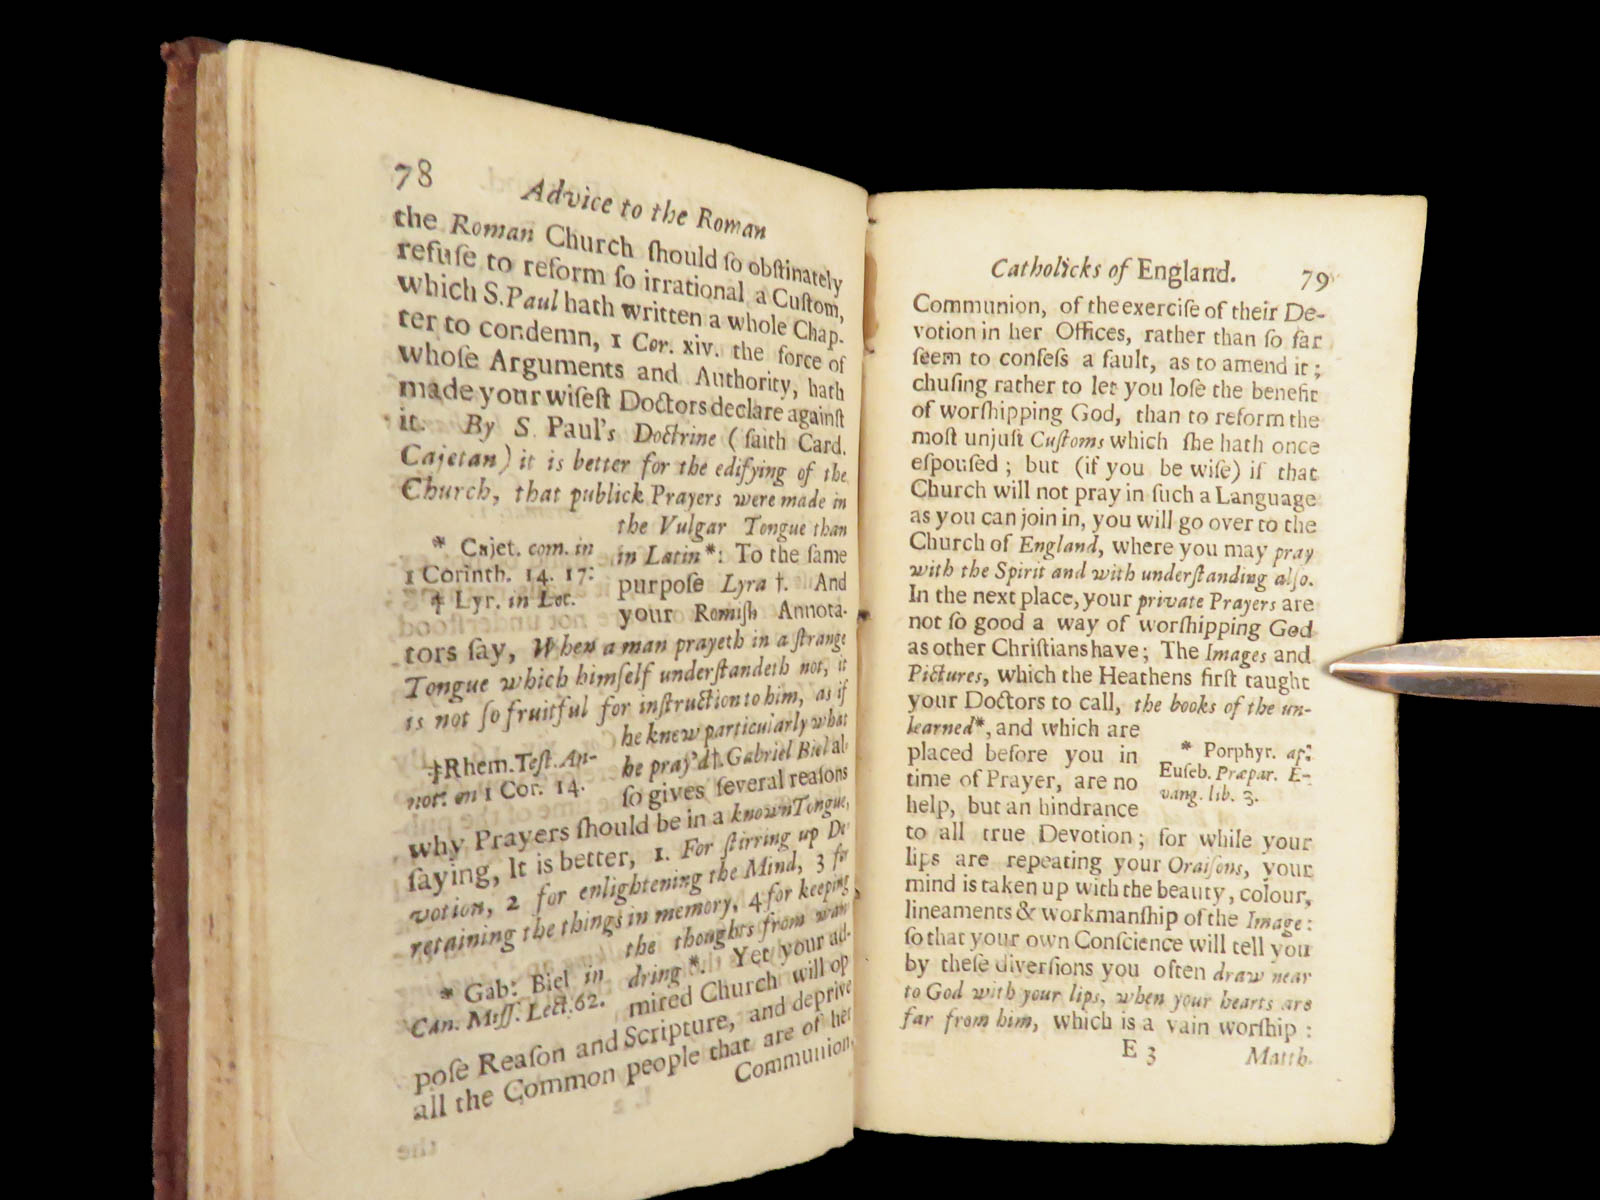 78
Advice to the Roman
the Roman Church ſhould ſo obſtinately
refuſe to reform ſo irrational a Cuſtom,
which S. Paul hath written a whole Chap-
ter to condemn, 1 Cor. xiv. the force of
whoſe Arguments and Authority, hath
made your wiſeſt Doctors declare againſt
it. By S. Paul's Doctrine (ſaith Card.
Cajetan) it is better for the edifying of the
Church, that publick Prayers were made in
the Vulgar Tongue than
in Latin*: To the ſame
purpoſe Lyra †. And
your Romiſh Annota-
* Cajet. com. in
1 Corinth. 14. 17:
† Lyr. in Loc.
tors ſay, When a man prayeth in a ſtrange
Tongue which himſelf underſtandeth not, it
is not ſo fruitful for inſtruction to him, as if
he knew particularly what
he pray'd†. Gabriel Biel al-
ſo gives ſeveral reaſons
‡Rhem. Teſt. An-
not: on 1 Cor. 14.
why Prayers ſhould be in a known Tongue,
ſaying, It is better, 1. For ſtirring up De-
votion, 2 for enlightening the Mind, 3 for
retaining the things in memory, 4 for keeping
the thoughts from wan-
dring*. Yet your ad-
mired Church will op-
* Gab: Biel in
Can. Miſſ. Lect. 62.
poſe Reaſon and Scripture, and deprive
all the Common people that are of her
Communion,
Catholicks of England. 79
Communion, of the exerciſe of their De-
votion in her Offices, rather than ſo far
ſeem to confeſs a fault, as to amend it;
chuſing rather to let you loſe the benefit
of worſhipping God, than to reform the
moſt unjuſt Cuſtoms which ſhe hath once
eſpouſed; but (if you be wiſe) if that
Church will not pray in ſuch a Language
as you can join in, you will go over to the
Church of England, where you may pray
with the Spirit and with underſtanding alſo.
In the next place, your private Prayers are
not ſo good a way of worſhipping God
as other Chriſtians have; The Images and
Pictures, which the Heathens firſt taught
your Doctors to call, the books of the un-
learned*, and which are
placed before you in
time of Prayer, are no
help, but an hindrance
* Porphyr. ap:
Euſeb. Præpar. E-
vang. lib. 3.
to all true Devotion; for while your
lips are repeating your Oraiſons, your
mind is taken up with the beauty, colour,
lineaments & workmanſhip of the Image:
ſo that your own Conſcience will tell you
by theſe diverſions you often draw near
to God with your lips, when your hearts are
far from him, which is a vain worſhip:
E 3 Matth.